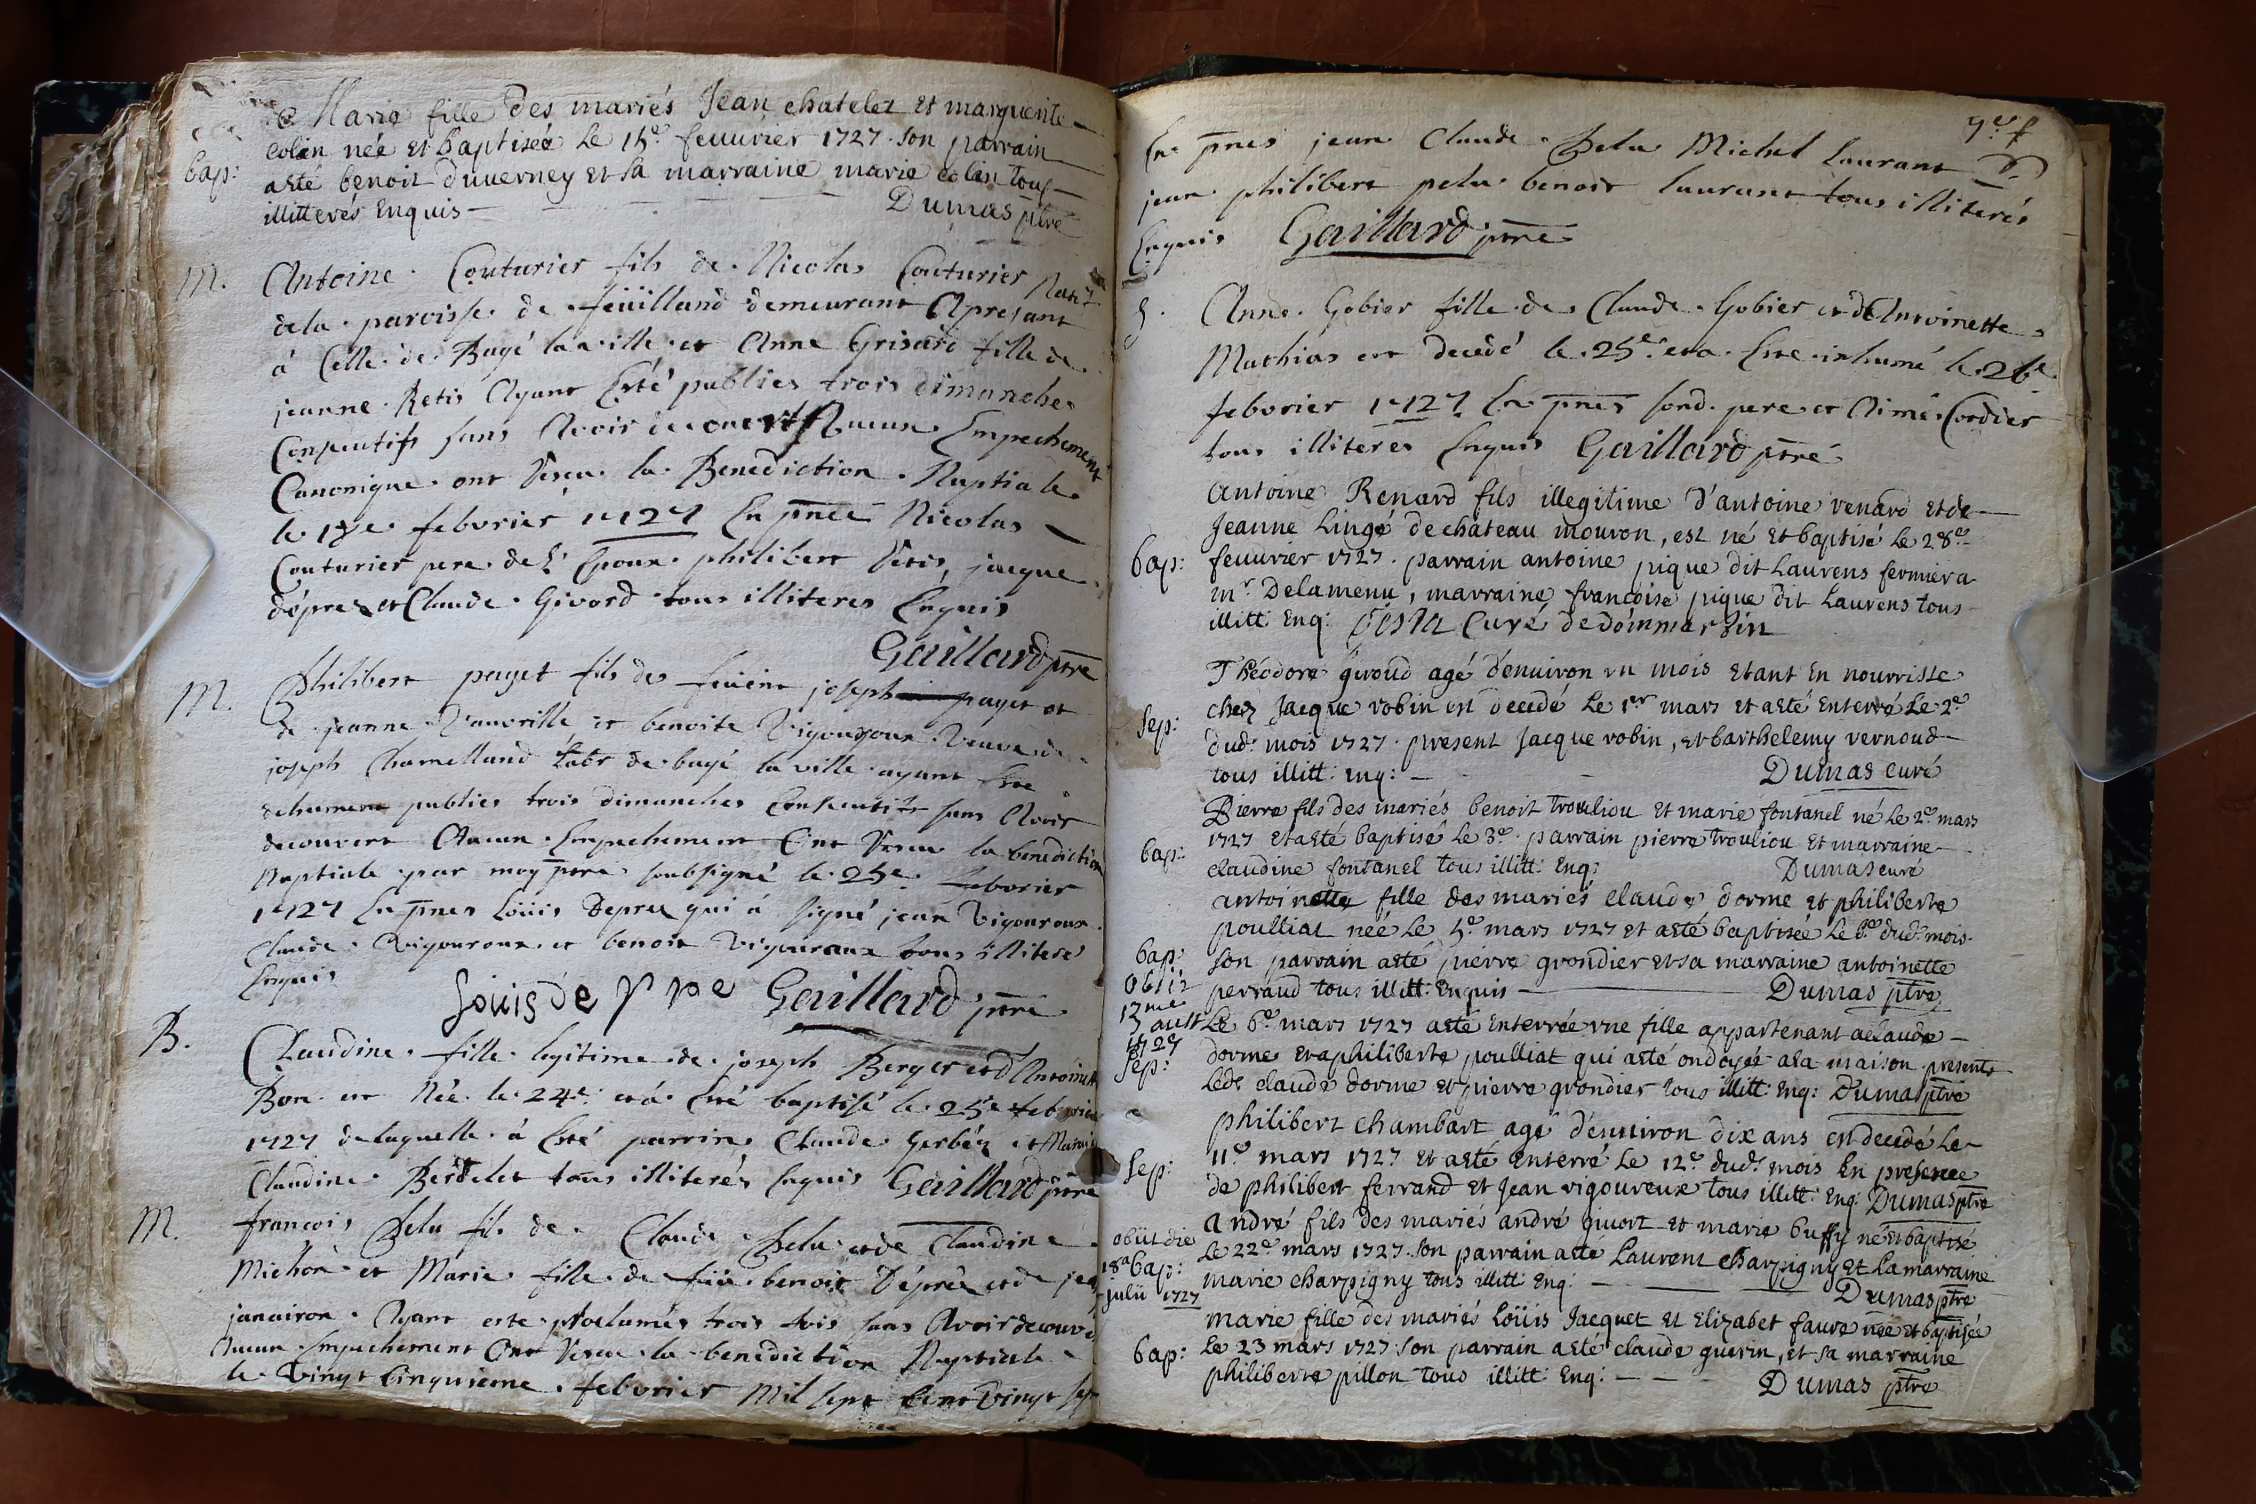 Marie fille des mariés Jean chatelet et marguerite
bap:
colin née et baptiseé le 15e feuurier 1727. son parrain
a esté benoit duuerney et sa marraine marie colin tous
illitterés enquis Dumas ptre
M.
Antoine Couturier fils de Nicolas Couturier Natif
dela paroisse de feüilland demeurant Apresant
á Celle de Bagé la ville et Anne Grisard fille de
jeanne Retis Ayant Esté publies trois dimanches
Consecutifs sans Avoir decouvert Aucun Empechement
Canonique ont Reçu la Benediction Nuptiale
le 18e febvrier 1727 En pnce Nicolas
Couturier pere de l' Epoux philibert Retis, jacque
déprez et Claude Givord tous illiteres Enquis
Gaillard ptre
M.
Philibert payet fils de joseph payet et
de jeanne et benoite Vigouroux Veuve de
joseph Chamelland de bagé la ville ayant
publies trois dimanches Consecutifs sans Avoir
decouvert Aucun Empechement Ont Receu la benediction
Nuptiale par moy ptre soubsigné le 25e febvrier
1727 En pnes Loüis Deprez qui á signé jean Vigouroux
Claude Vigouroux et benoit Vigouroux tous illiteres
Enquis
Gaillard ptre
B.
Claudine fille legitime de joseph Berger et d'Antoinette
Bon est Née le 24e et á Esté baptisé le 25e febvrier
1727 de laquelle á Esté parrin Claude Gerbéz et Maraine
Claudine Berthelet tous illiterés Enquis Gaillard ptre
M.
francois Pelu fils de Claude Pelu et de Claudine
Michon et Marie fille de feüe benoit Déprèz et de
janairon Ayant este proclamés trois fois sans Avoir decouvé
Aucun Empechement Ont Receu la benediction Nuptiale
le Vingt Cinquieme febvrier Mil sept Cent Vingt sept
En pnes jean Claude Pelu Michel Laurant
jean philibert pelu benoit laurant tous illiterés
Enquis Gaillard ptre
S.
Anne Gobier fille de Claude Gobier et d'Antoinette
Mathias est decedé le 25e et a Esté inhumé le 26e
febvrier 1727 En pnes sond. pere et Aimé Cordier
tous illiteres Enquis Gaillard ptré
antoine Renard fils illegitime d'antoine renard et de
Jeanne Lingé de chateau mouron, est né et baptisé le 28e
bap:
feuurier 1727. parrain antoine pique dit Laurens fermier a
mr Delamenu, marraine françoise pique dit Laurens tous
illitt: Enq: Costa Curé de dommartin
Théodore giroud agé d'enuiron vn mois etant En nourrisse
sep:
chez Jacque robin est decedé le 1er mars et a esté Enterré le 2e
dud: mois 1727. present Jacque robin, et barthelemy vernoud
tous illitt: enq: Dumas curé
Pierre fils des mariés benoit trouliou et marie fontanel né le 2e mars
bap:
1727 et a esté baptisé le 3e. parrain pierre trouliou et marraine
claudine fontanel tous illitt: Enq: Dumas curé
antoinette fille des mariés claude dorme et philiberte
poulliat née le 5e mars 1727 et a esté baptisée le 6e dud: mois.
bap:
son parrain a esté pierre grondier et sa marraine antoinette
obiit
13me
aust
1727
perraud tous illitt: Enquis Dumas ptre
sep:
Le 6e mars 1727 a esté Enterrée vne fille appartenant a claude
dorme et a philiberte poulliat qui a esté ondoyée a la maison presents
led: claude dorme et pierre grondier tous illitt: enq: Dumas ptre
philibert chambart agé d'enuiron dix ans est decedé le
sep:
11e mars 1727 et a esté enterré le 12e dud: mois En presence
de philibert ferrand et Jean vigoureux tous illitt: Enq: Dumas ptre
andré fils des mariés andré giuort et marie buffy né et baptisé
obüt die
18a
julii 1727
bap:
le 22e mars 1727. son parrain a esté Laurent charpigny et la marraine
marie charpigny tous illitt: Enq: Dumas ptre
marie fille des mariés Loüis Jacquet et Elizabet faure née et baptisée
bap:
le 23 mars 1727. son parrain a esté claude guerin, et sa marraine
philiberte pillon tous illitt: Enq: Dumas ptre